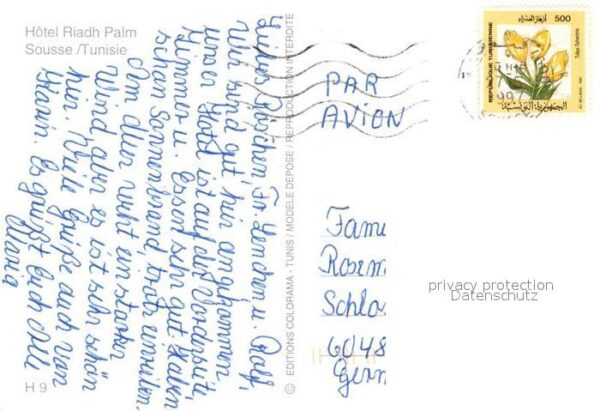 Hôtel Riadh Palm
Sousse /Tunisie
Wir sind gut hier angekommen
unser Hotel ist auf das modernste,
Zimmer u. Essen sehr gut. Haben
schon Sonnenbrand, trotz
Am oder weht ein starker
Wind aber es ist sehr schön
hier. Viele Grüße auch von
Karin. Es grüßt Euch Alle
Maria
H 9
© EDITIONS COLORAMA - TUNIS / MODELE DEPOSE / REPRODUCTION INTERDITE
PAR
AVION
REPUBLIQUE TUNISIENNE
500
Tulipa Sylvestris
الجمهورية التونسية
1997
Fame
Rosem
Schlo
6048
Germ
privacy protection
Datenschutz